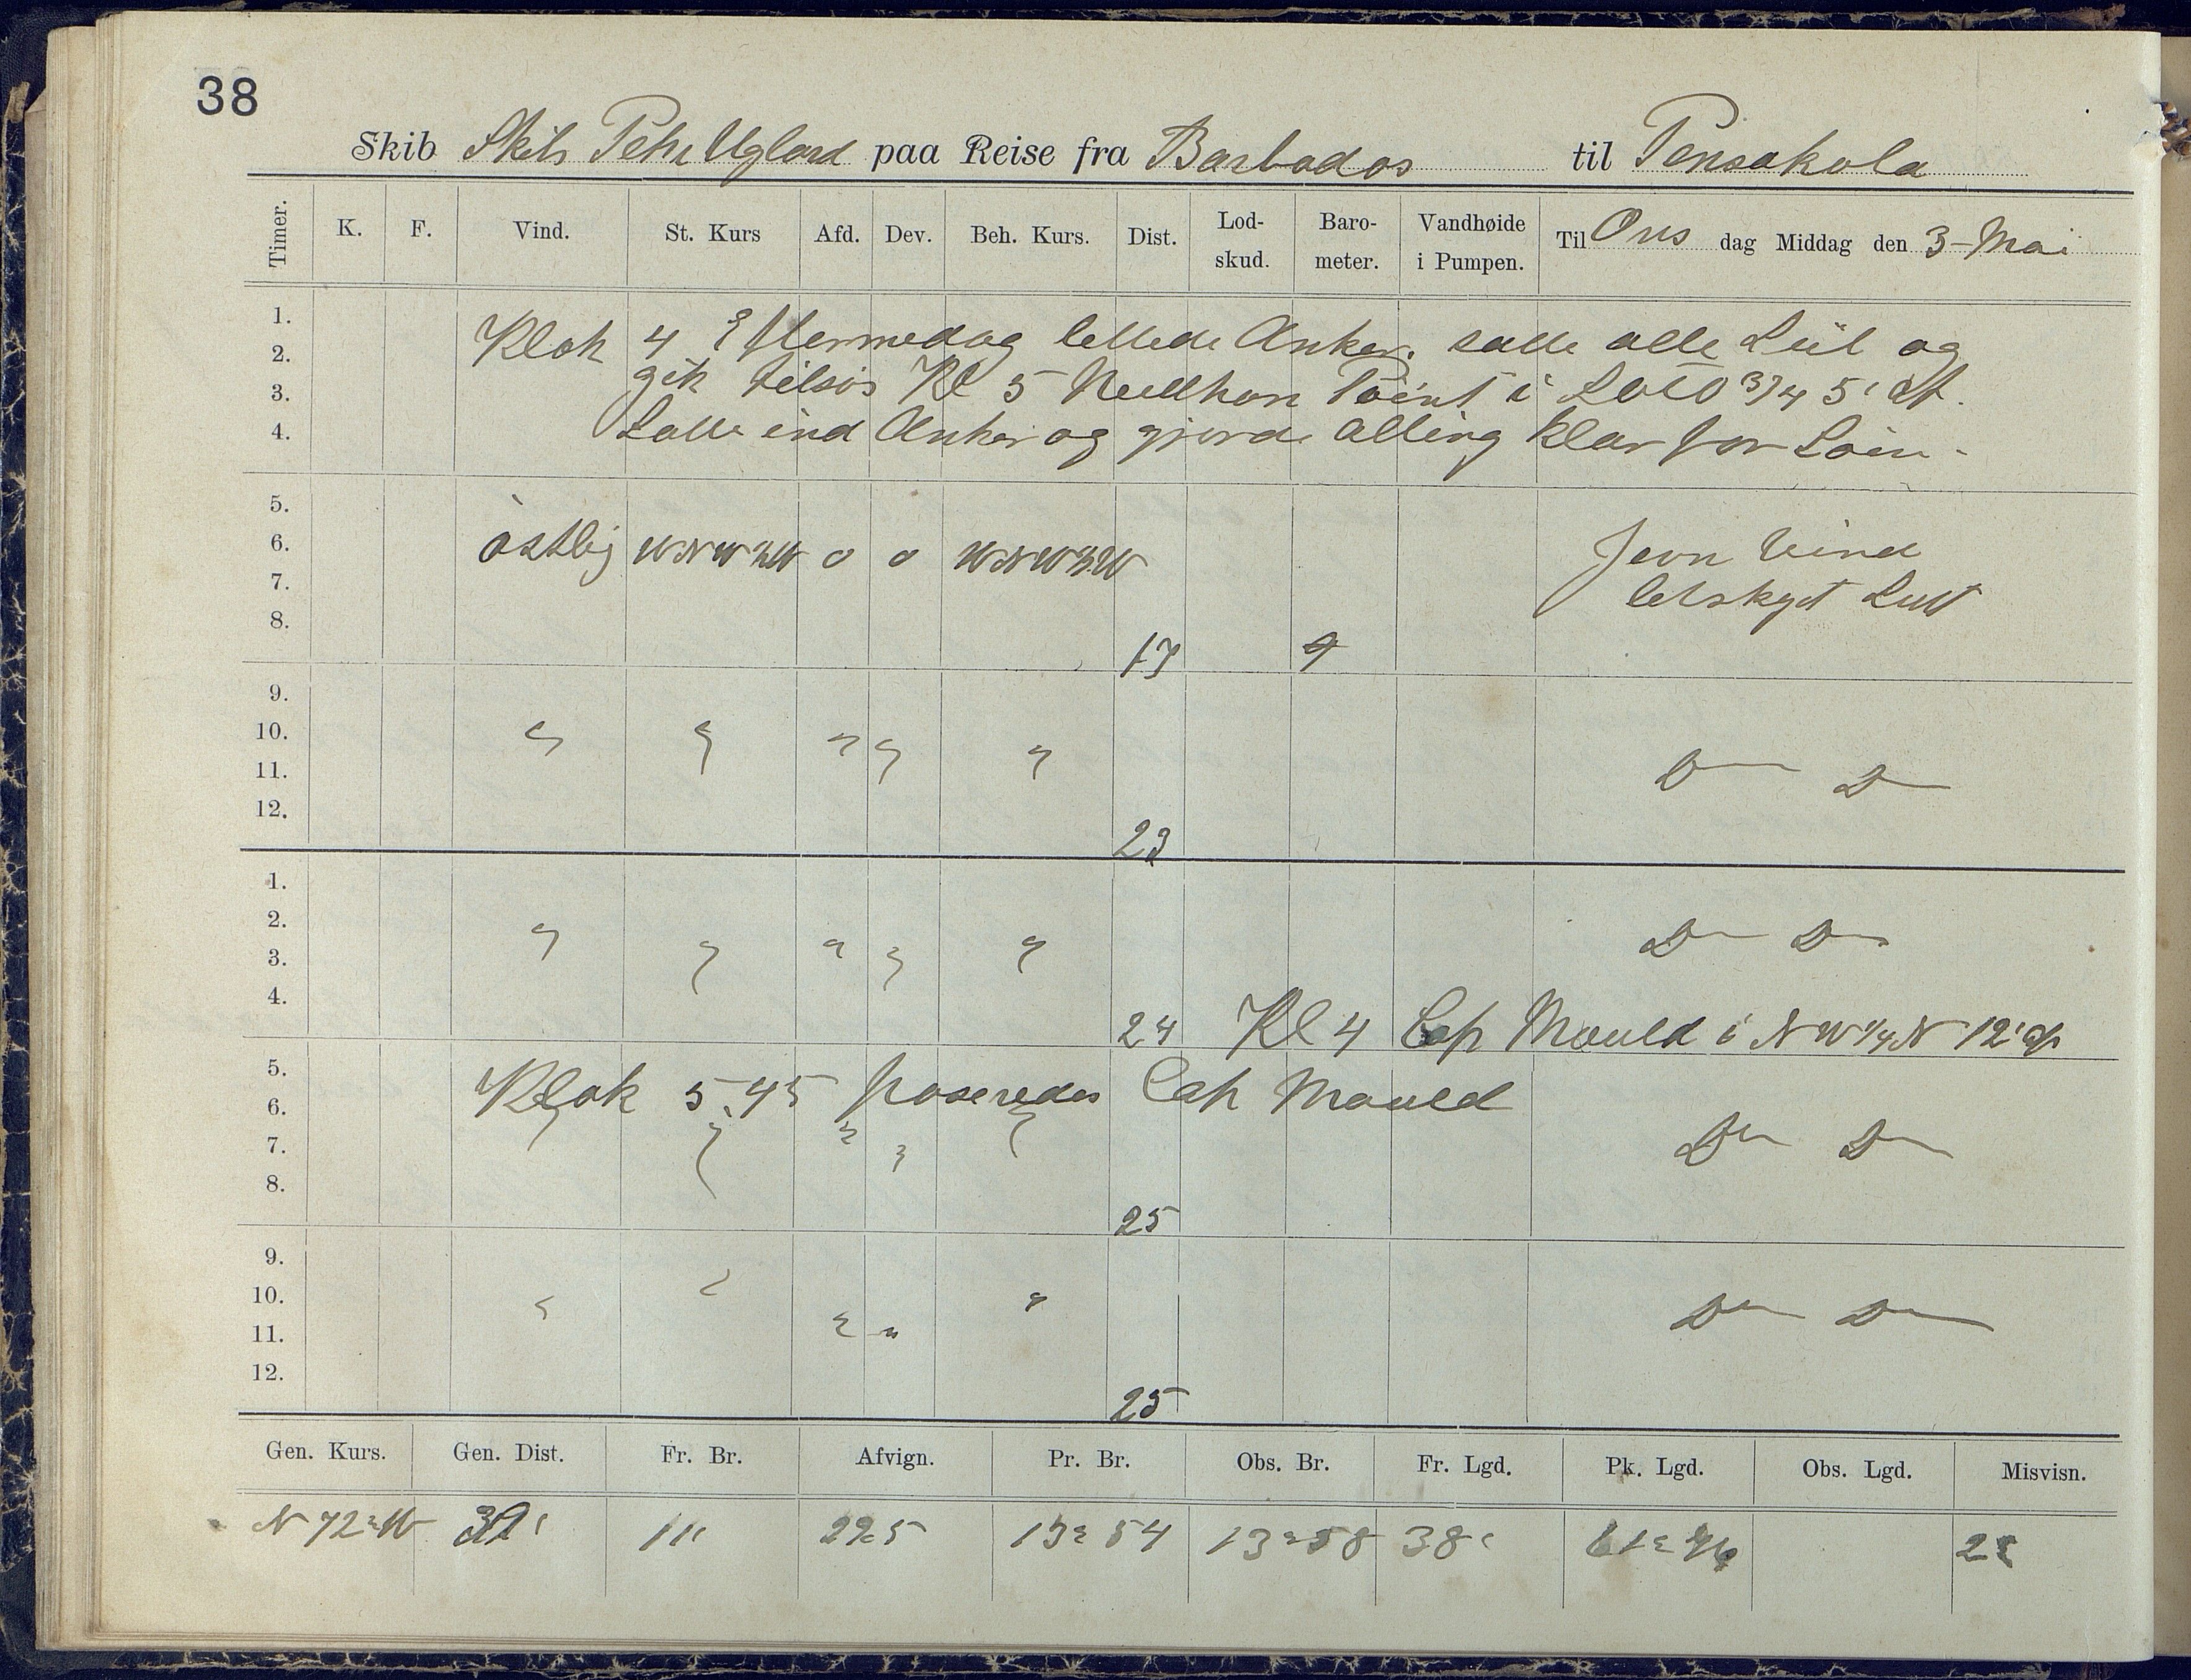 38
Skib Skib Peter Ugland paa Reise fra Barbados til Pensakola
Timer. K. F. Vind. St. Kurs Afd. Dev. Beh. Kurs. Dist. Lod-skud. Baro-meter. Vandhøide i Pumpen. Til Ons dag Middag den 3 - Mai
1.
2. Klok 4 Eftermedag lettede Anker. satte alle Seil og
3. gik tilsøs Kl 5 Point i 3/4 5' af.
4. Satte ind Anker og gjorde alting klar for Søen -
5.
6. østlig WNW3/4W o o WNW3/4W Jevn Vind
7. letskyet Luft
8. 17 9
9.
10. " " " " "
11. D D
12. 23
1.
2. " " " " " D D
3.
4. 24 Kl 4 Cap Mauld i NW1/4N 12' af
5.
6. Klok 5.45 paseredes Cap Mauld
7. " " " " " D D
8. 25
9.
10. " " " " " D D
11.
12. 25
Gen. Kurs. Gen. Dist. Fr. Br. Afvign. Pr. Br. Obs. Br. Fr. Lgd. Pk. Lgd. Obs. Lgd. Misvisn.
N 72° W 11' 13° 54 13° 58 38'